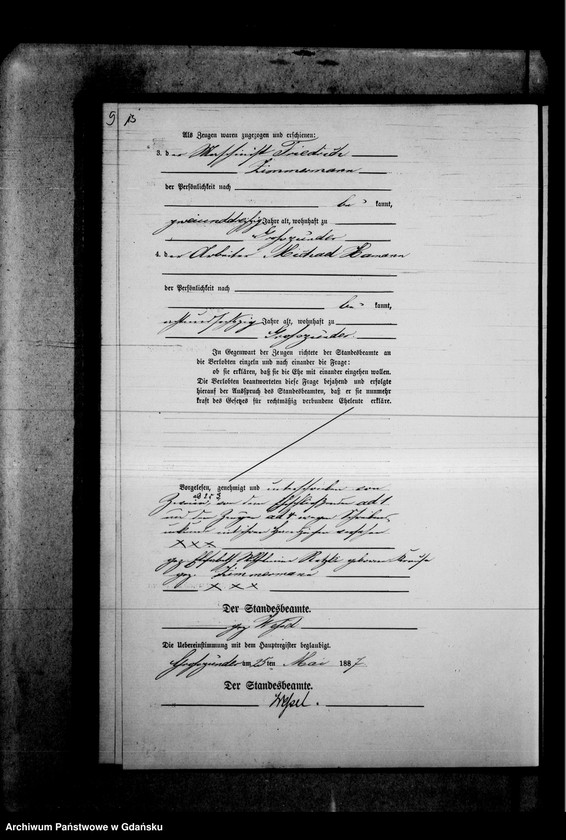 9 B
Als Zeugen waren zugezogen und erschienen:
3. der Maschinist Friedrich
Zimmermann
der Persönlichkeit nach
be kannt,
Jahre alt, wohnhaft zu
Großzünder
4. der Arbeiter Michael Hamann
der Persönlichkeit nach
be kannt,
achtundsechzig Jahre alt, wohnhaft zu
Großzünder.
In Gegenwart der Zeugen richtete der Standesbeamte an
die Verlobten einzeln und nach einander die Frage:
ob sie erklären, daß sie die Ehe mit einander eingehen wollen.
Die Verlobten beantworteten diese Frage bejahend und erfolgte
hierauf der Ausspruch des Standesbeamten, daß er sie nunmehr
kraft des Gesetzes für rechtmäßig verbundene Eheleute erkläre.
Vorgelesen, genehmigt und unterschrieben von
ad 2 & 3
von dem Eheschließenden ad 1
und dem Zeugen ad 4 wegen
mit ihren Handzeichen versehen
XXX
gez. Elisabeth Wilhelmine geborene Krause
gez. Zimmermann
XXX
Der Standesbeamte.
gez. Wessel
Die Uebereinstimmung mit dem Hauptregister beglaubigt.
Großzünder am 25 ten Mai 1887
Der Standesbeamte.
Wessel.
Archiwum Państwowe w Gdańsku